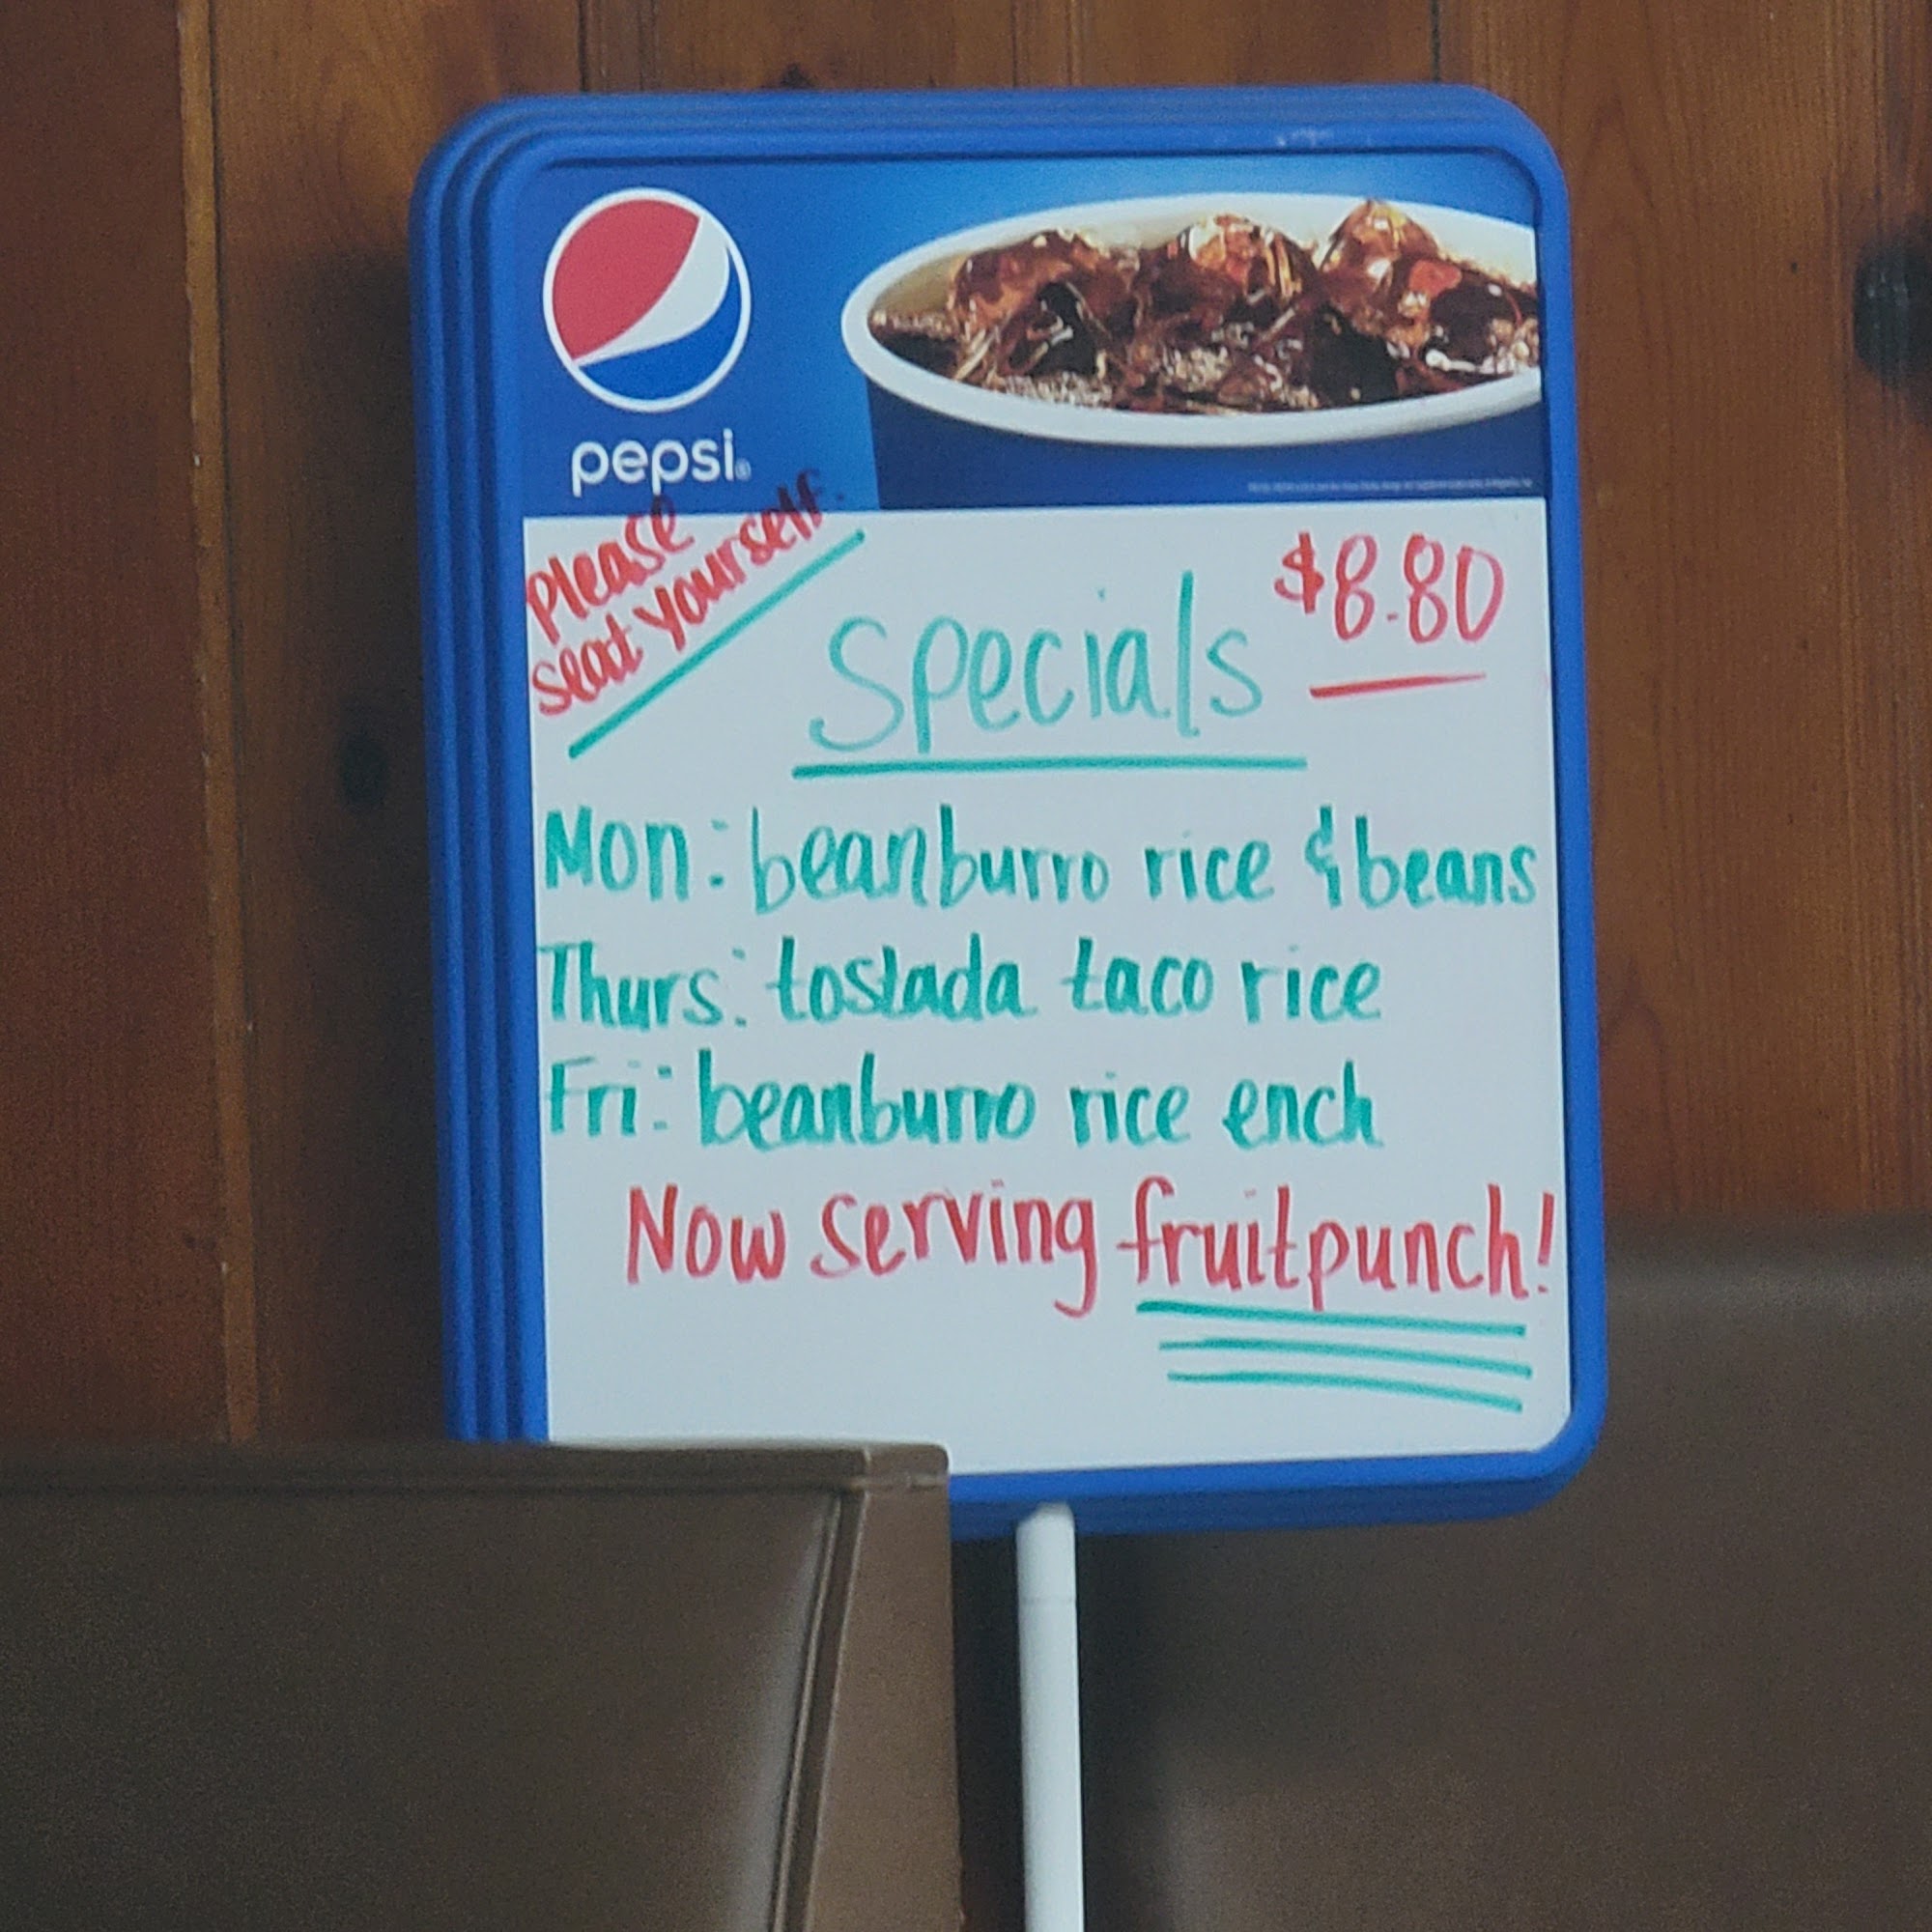 pepsi®
Please
seat yourself.
$8.80
Specials
Mon: beanburro rice & beans
Thurs: tostada taco rice
Fri: beanburro rice ench
Now serving fruitpunch!